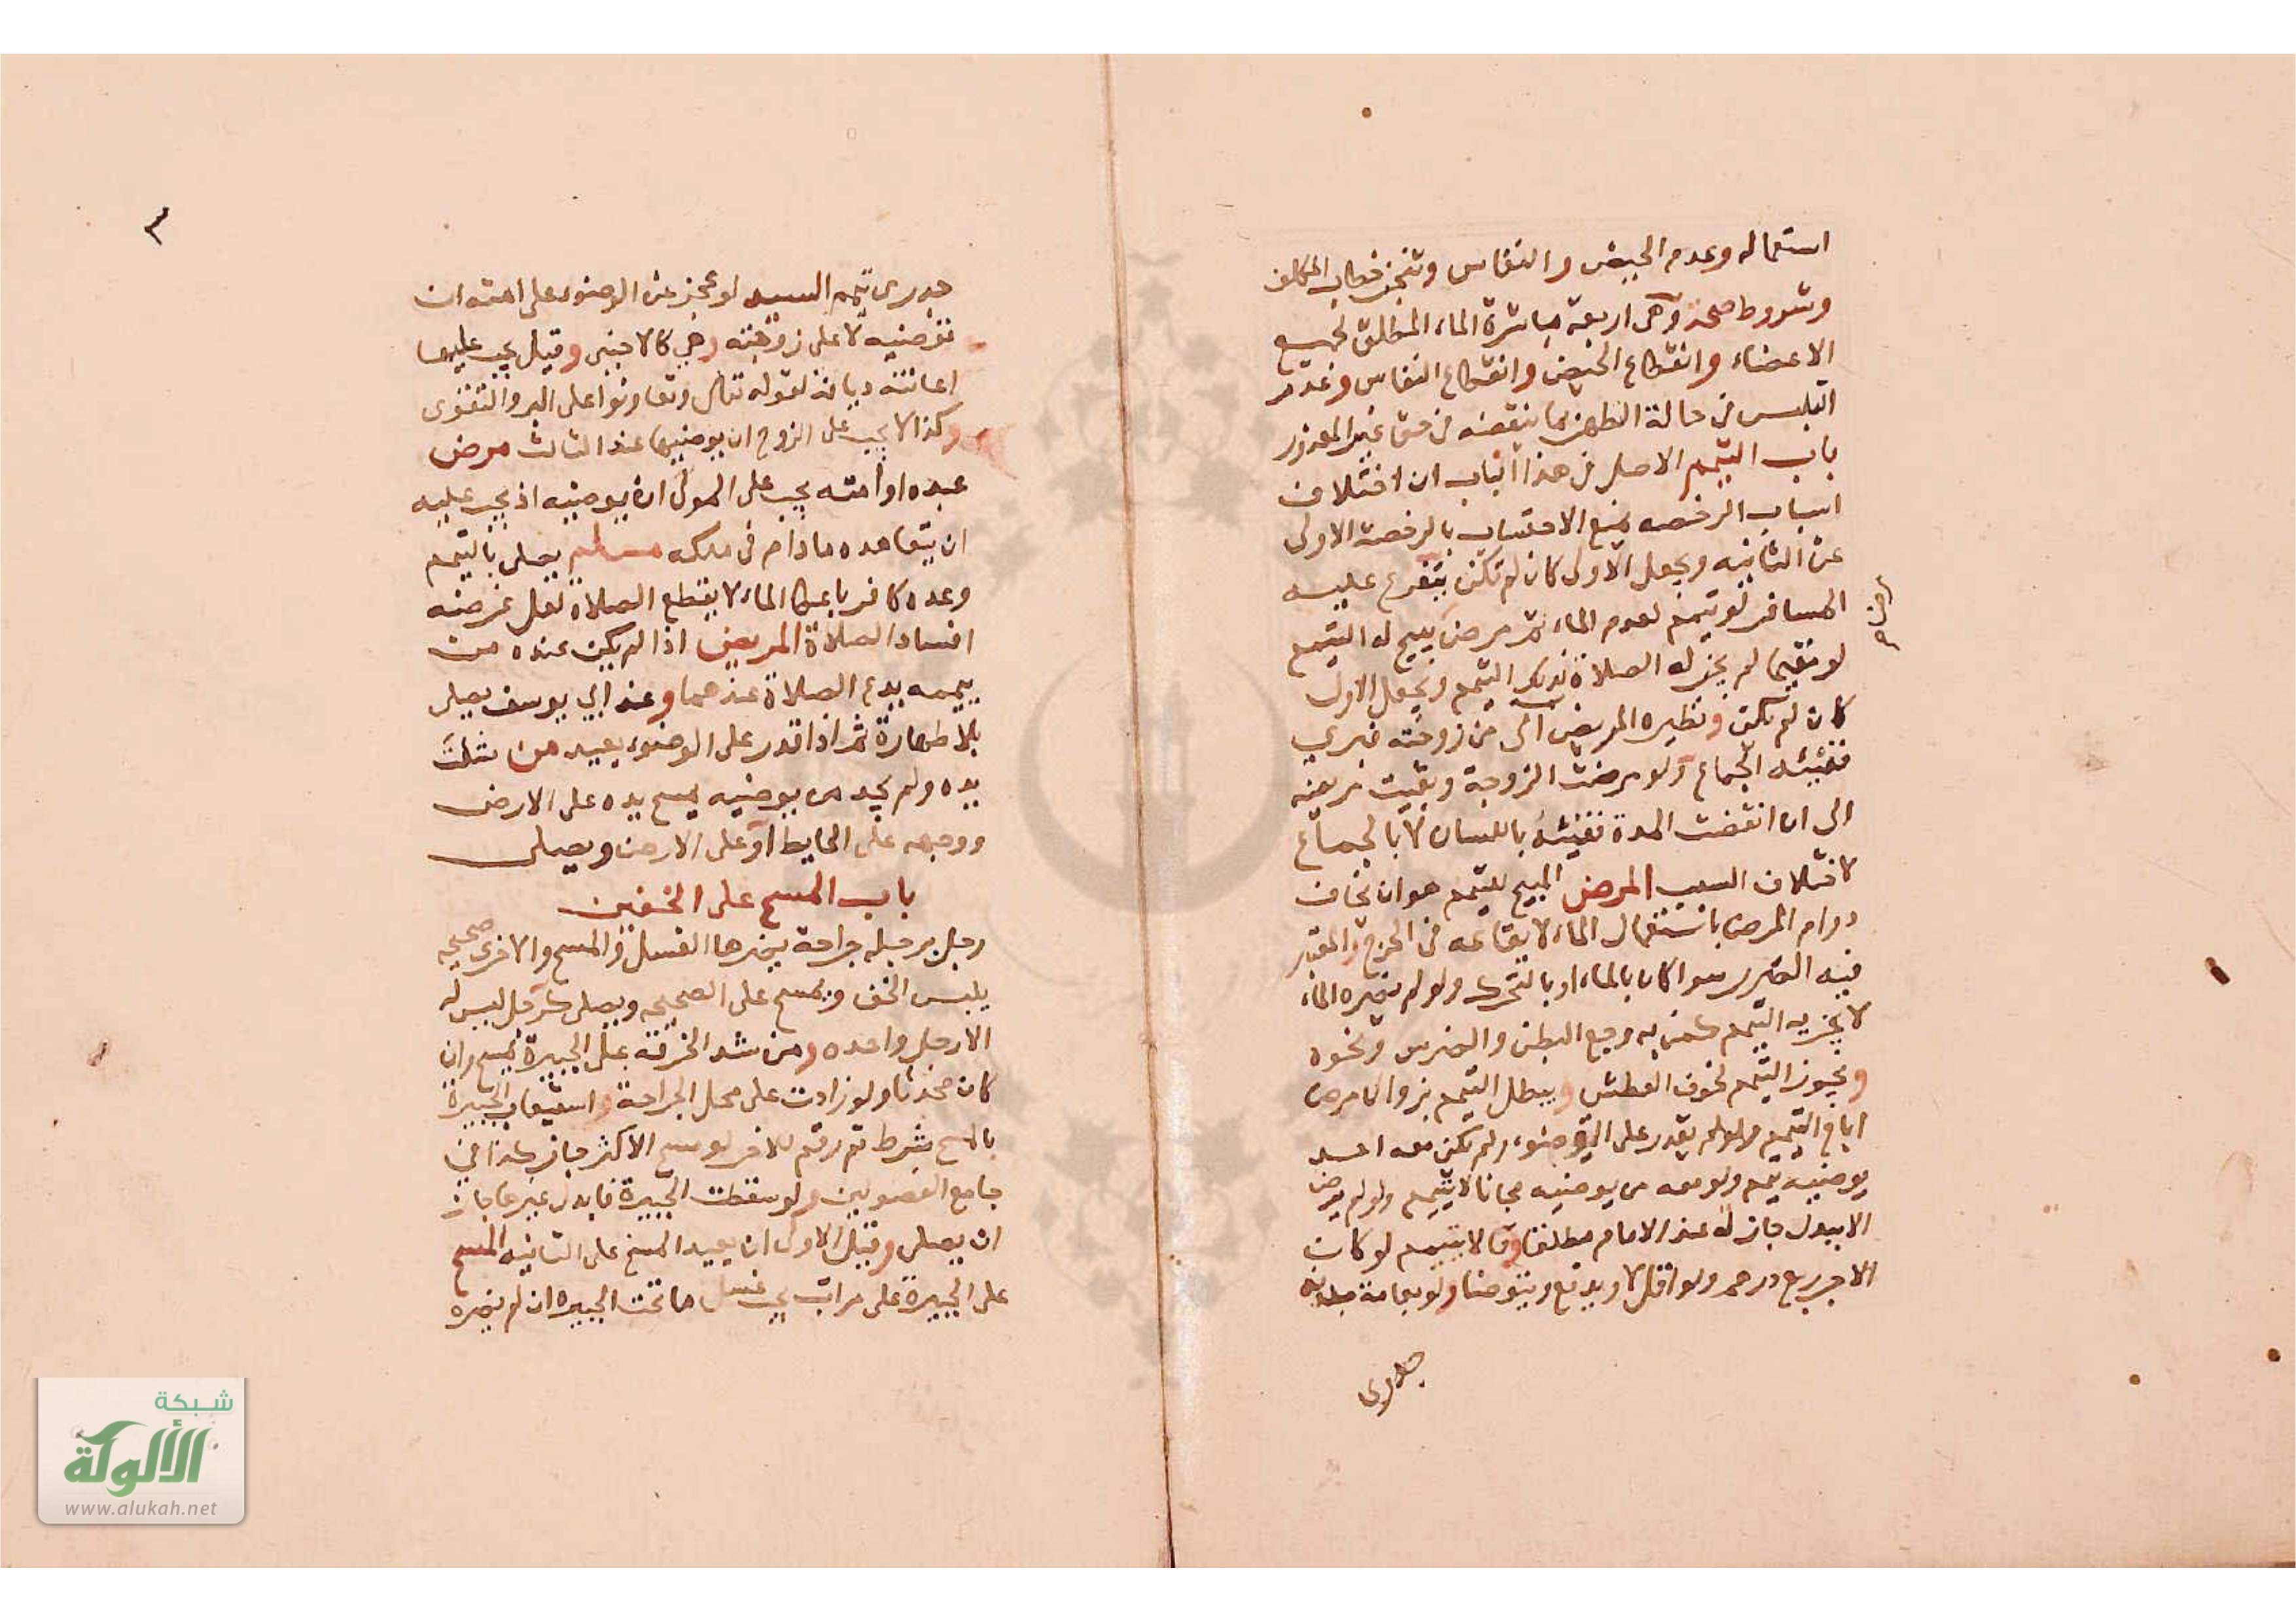 استعماله وعدم الحيض والنفاس وتنجز خطاب المكلف
وشروط صحة وهى اربعة مباشرة الماء المطلق لجميع
الاعضاء وانقطاع الحيض وانقطاع النفاس وعدم
التلبس فى حالة التطهر بما ينقضه فى حق غير المعذور
باب التيمم الاصل فى هذا الباب ان اختلاف
اسباب الرخصه يمنع الاحتساب بالرخصة الاولى
عن الثانيه ويجعل الاولى كان لم تكن يتفرع عليه
المسافر لو تيمم لعدم الماء ثم مرض يبيح له التيمم
لو مقيما لم يجز له الصلاة بذلك التيمم ويجعل الاول
كان لم يكن ونظيره المريض الى من زوجته فبري
ففيئه الجماع ولو مرضت الزوجة وبقيت مريضه
الى ان انقضت المدة ففيئه باللسان لا بالجماع
لاختلاف السبب المرض المبيح للتيمم هو ان يخاف
دوام المرض باستعمال الماء لا يقاعه فى الحرج والمعتبر
فيه الضرر سوا كان بالماء او بالتحرك ولو لم يضره الماء
لا يجزيه التيمم كمن به وجع البطن والضرس ونحوه
ويجوز التيمم لخوف العطش ويبطل التيمم بزوال مرض
اباح التيمم ولو لم يقدر على الوضوء ولم يكن معه احد
يوضيه تيمم ولو معه من يوضيه مجانا لا يتيمم ولو لم يرض
الا ببدل جاز له عند الامام مطلقا وقالا يتيمم لو كان
الاجر ربع درهم ولو اقل لا ويدفع ويتوضا ولو بعامة
جدرى تيمم السيد لو عجز عن الوضوء على امته ان
توضيه لا على زوجته وهى كالاجنبى وقيل يجب عليها
اعانته ديانة لقوله تعالى وتعاونوا على البر والتقوى
وكذا لا يجب على الزوج ان يوضيها عند الثالث مرض
عبده او امته يجب على المولى ان يوضيه اذ يجب عليه
ان يتعاهده مادام فى ملكه مسلم يصلى بالتيمم
وعده كافر باعطا الماء لا يقطع الصلاة لعل غرضه
افساد الصلاة المريض اذا لم يكن عنده من
ييممه يدع الصلاة عندهما وعند ابى يوسف يصلى
بلا طهارة ثم اذا قدر على الوضوء يعيد من شلت
يده ولم يجد من يوضيه يمسح يده على الارض
ووجهه على الحايط او على الارض ويصلى
باب المسح على الخفين
رجل برجله جراحة يضرها الغسل والمسح والاخرى صحيحه
يلبس الخف ويمسح على الصحيحه ويصلى كرجل ليس له
الا رجل واحده ومن شد الخرقة على الجبيرة يمسح وان
كان محدثا ولو زادت على محل الجراحة واستيعاب الجبيرة
بالمسح شرط لو مسح الاكثر جاز كذا فى
جامع الفصولين ولو سقطت الجبيرة فابدل غيرها جاز
ان يصلى وقيل الاولى ان يعيد المسح على الثانيه المسح
على الجبيرة على مراتب يجب غسل ما تحت الجبيره ان لم يضره
جدرى
شبكة
الألوكة
www.alukah.net